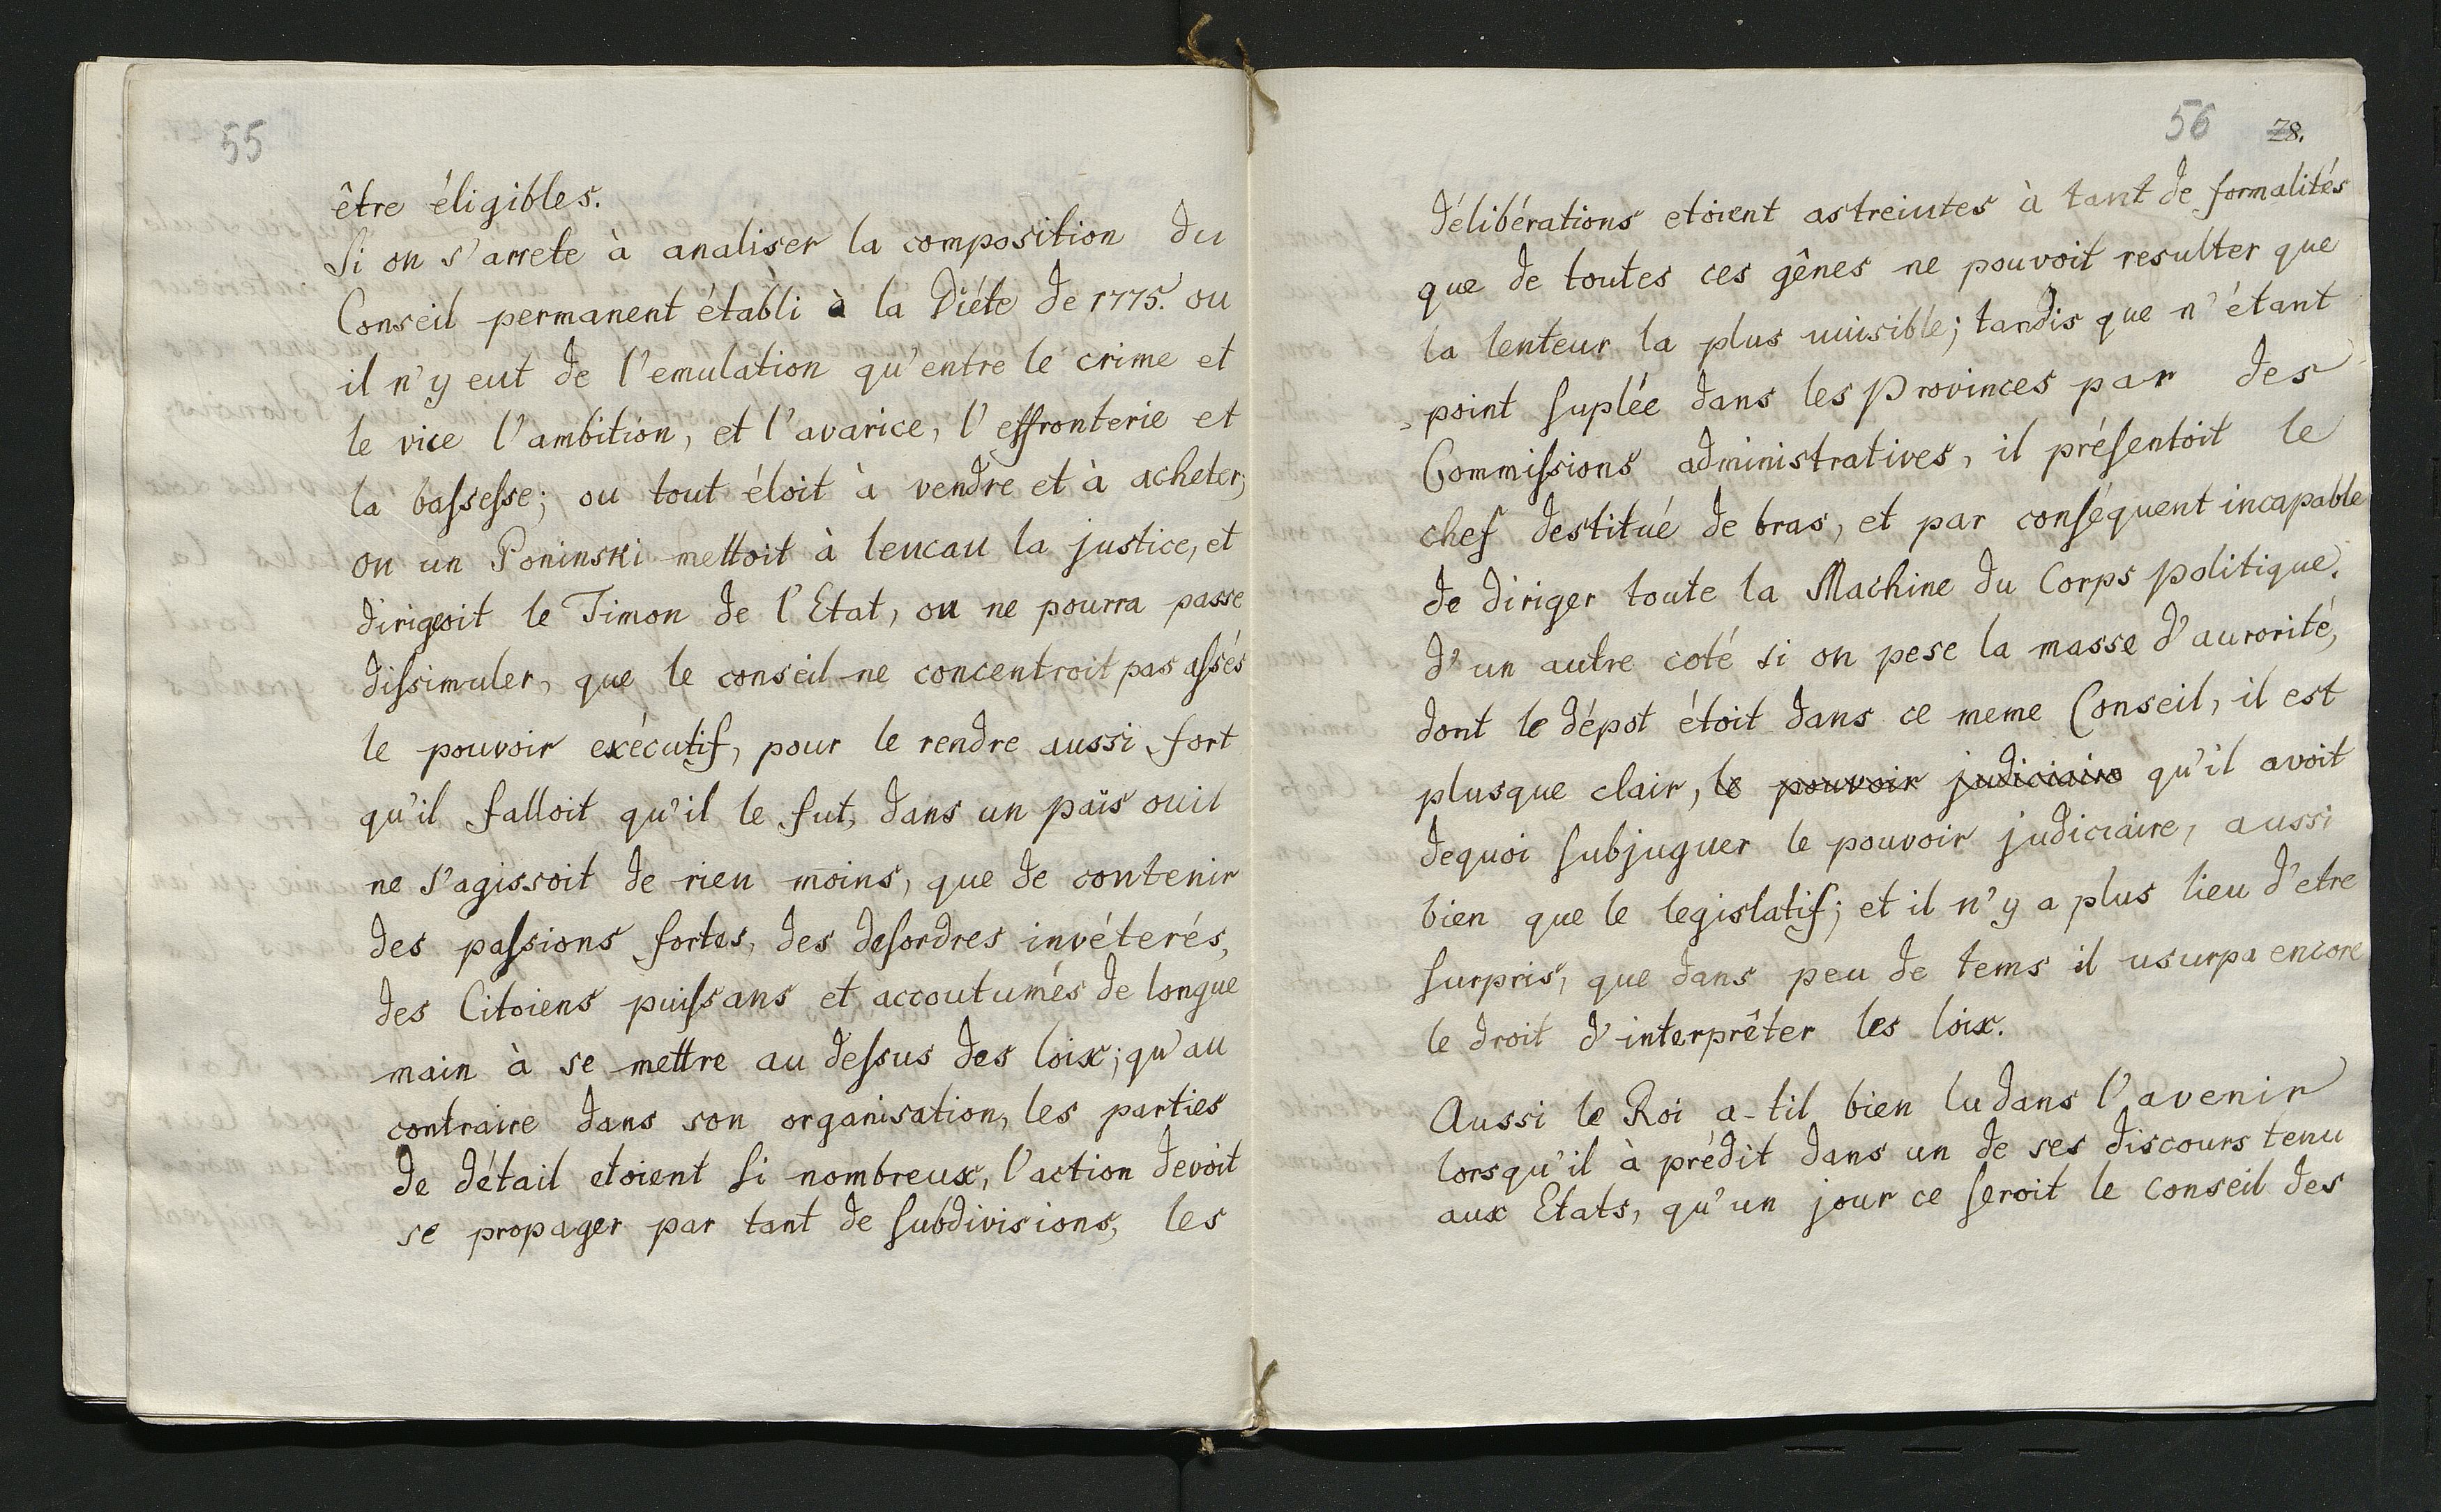 55
être éligibles.
Si on s'arrete à analiser la composition du
Conseil permanent établi à la Diéte de 1775. ou
il n'y eut de l'emulation qu'entre le crime et
le vice l'ambition, et l'avarice, l'effronterie et
la bassesse; ou tout étoit à vendre et à acheter;
ou un Poninski mettoit à lencau la justice, et
dirigeoit le Timon de l'Etat, on ne pourra passe
dissimuler, que le conseil ne concentroit pas assés
le pouvoir exécutif, pour le rendre aussi fort
qu'il falloit qu'il le fut, dans un païs ouil
ne s'agissoit de rien moins, que de contenir
des passions fortes, des desordres invéterés,
des Citoiens puissans et accoutumés de longue
main à se mettre au dessus des loix; qu'au
contraire dans son organisation, les parties
de détail etoient si nombreux, l'action devoit
se propager par tant de subdivisions, les
56 28.
délibérations etoient astreintes à tant de formalités
que de toutes ces gênes ne pouvoit resulter que
la lenteur la plus nuisible; tandis que n'étant
point suplée dans les Provinces par des
Commissions administratives, il présentoit le
chef destitué de bras, et par conséquent incapable
de diriger toute la Machine du Corps politique.
d'un autre coté si on pese la masse d'aurorité,
dont le dépot étoit dans ce meme Conseil, il est
plusque clair, le pouvoir judiciaire qu'il avoit
dequoi subjuguer le pouvoir judiciaire, aussi
bien que le legislatif; et il n'y a plus lieu d'etre
surpris, que dans peu de tems il usurpa encore
le droit d'interprêter les loix.
Aussi le Roi a-til bien lu dans l'avenir
lorsqu'il à prédit dans un de ses discours tenu
aux Etats, qu'un jour ce seroit le conseil des